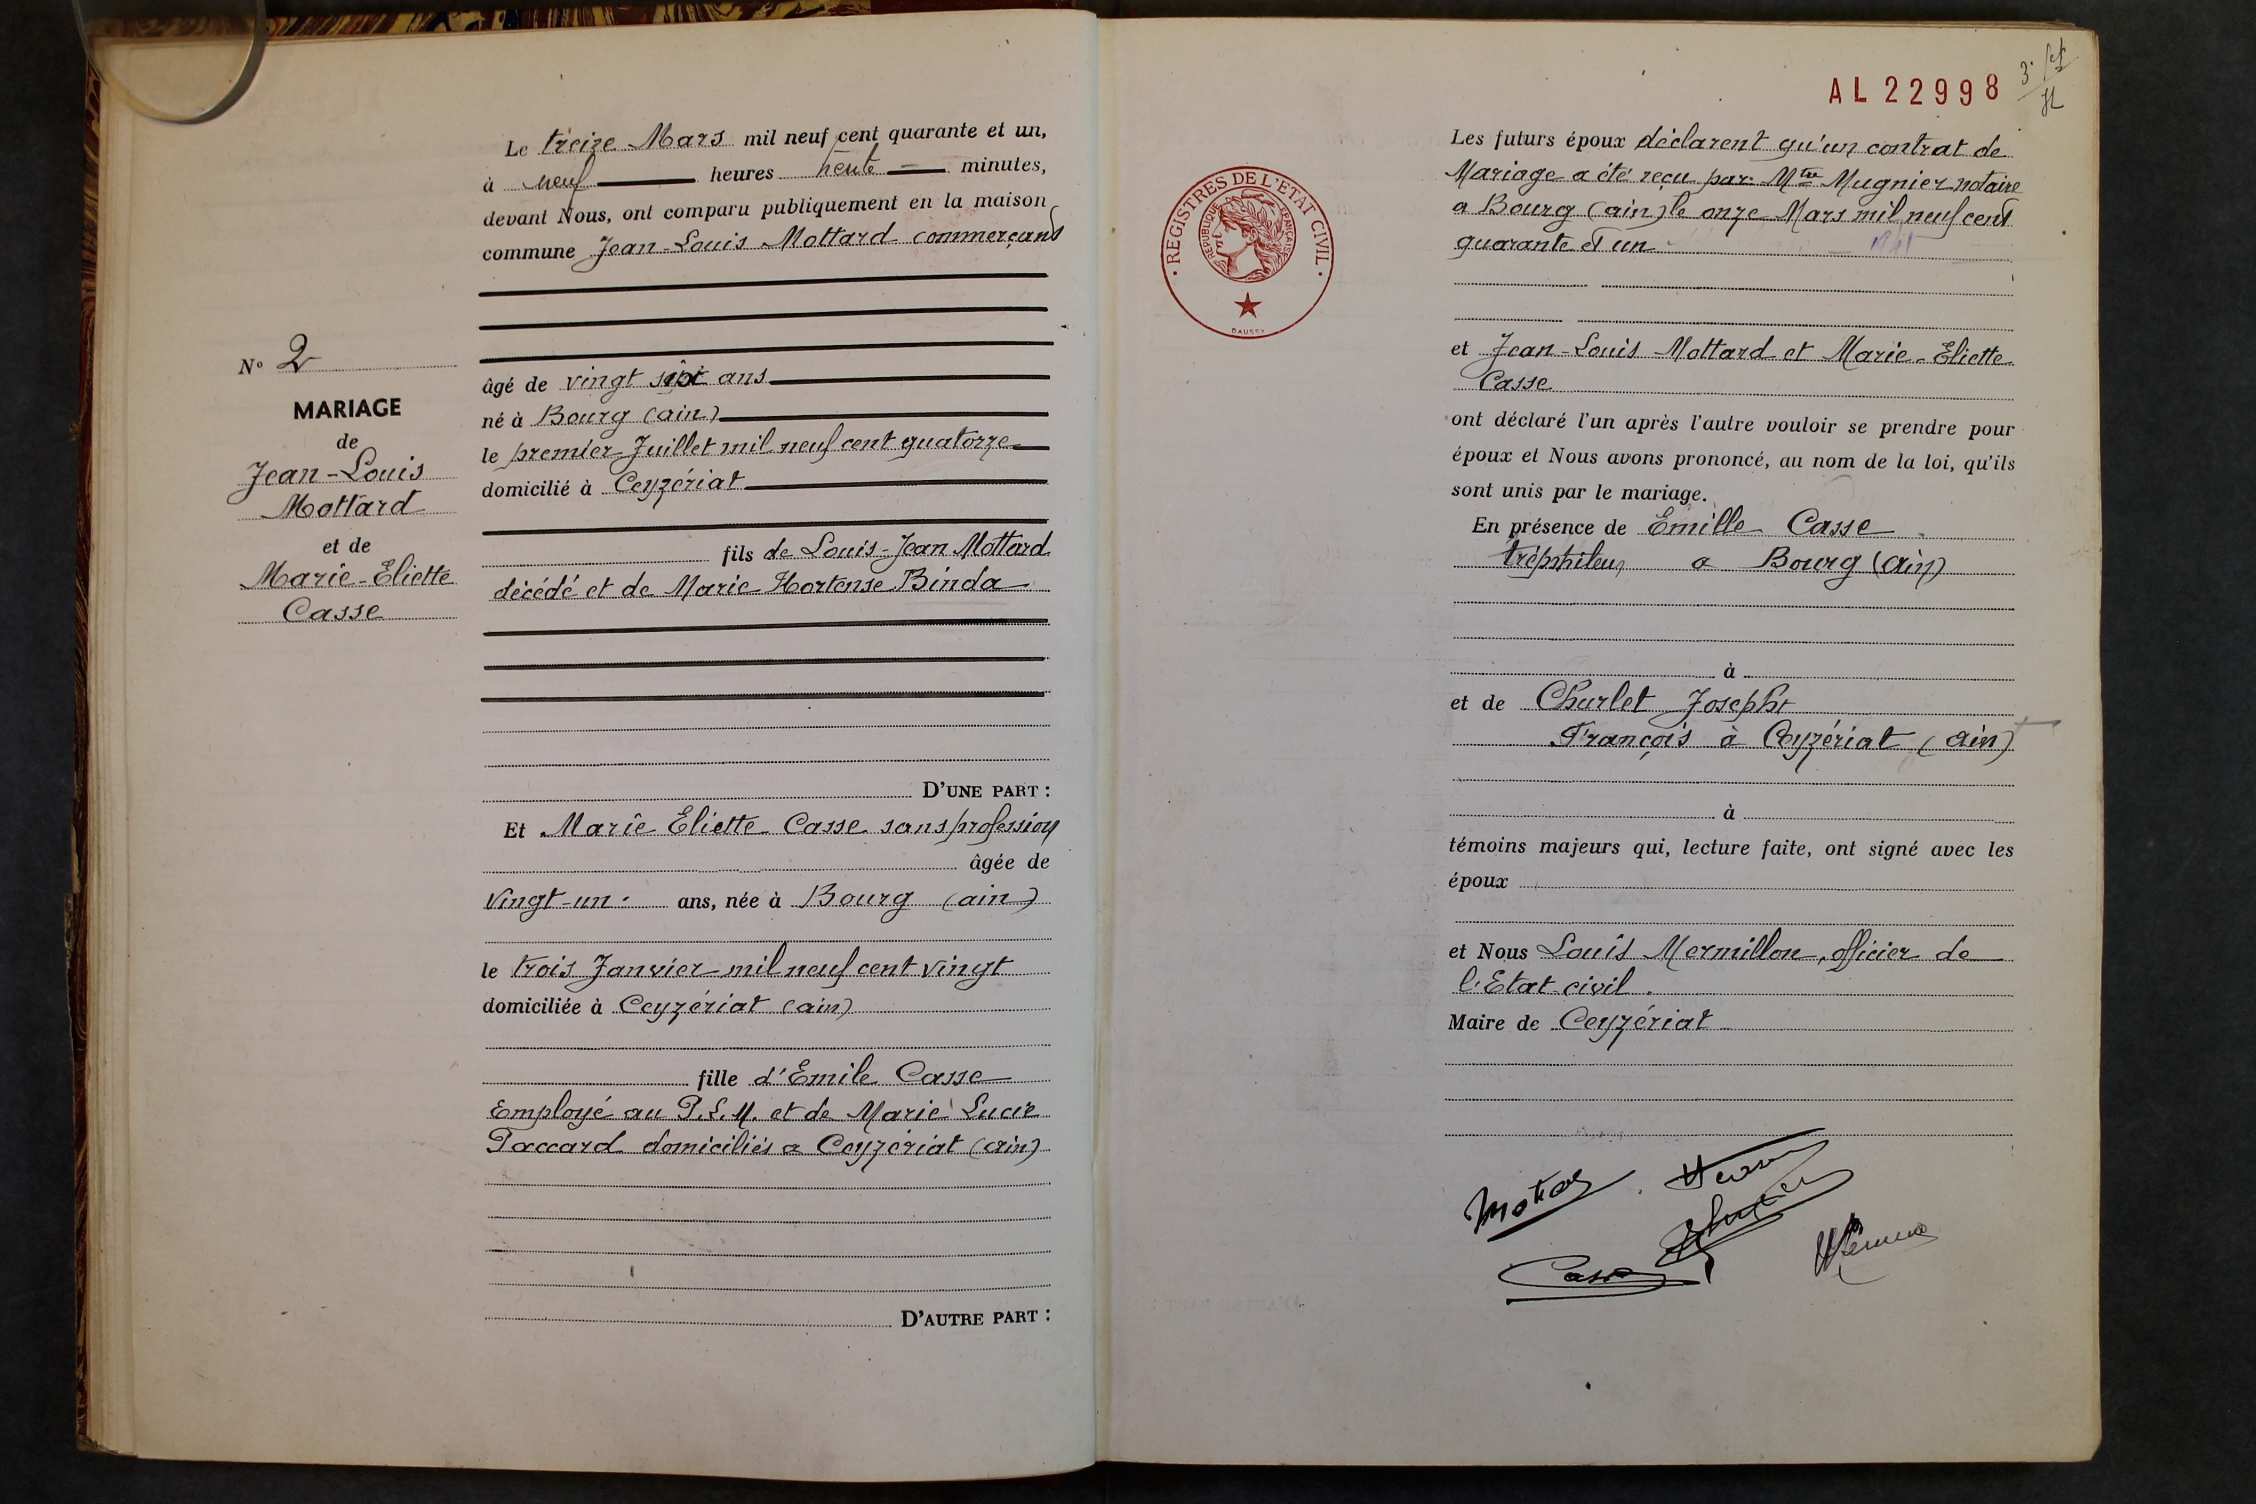 Le treize Mars mil neuf cent quarante et un,
à neuf heures trente minutes,
devant Nous, ont comparu publiquement en la maison
commune Jean-Louis Mottard commerçant
N° 2
MARIAGE
de
Jean-Louis
Mottard
et de
Marie-Eliette
Casse
âgé de vingt ans
né à Bourg (ain)
le premier Juillet mil neuf cent quatorze
domicilié à Ceyzériat
fils de Louis-Jean Mottard
décédé et de Marie Hortense Binda
D'UNE PART :
Et Marie Eliette Casse sans profession
âgée de
Vingt-un ans, née à Bourg (ain)
le trois Janvier mil neuf cent vingt
domiciliée à Ceyzériat (ain)
fille d'Emile Casse
Employé au P.L.M. et de Marie Lucie
Paccard domiciliés a Ceyzériat (ain)
D'AUTRE PART :
AL 22998
REGISTRES DE L'ETAT CIVIL
REPUBLIQUE FRANÇAISE
DAUSSY
Les futurs époux déclarent qu'un contrat de
Mariage a été reçu par Mtre Mugnier notaire
a Bourg (ain) le onze Mars mil neuf cent
quarante et un
et Jean-Louis Mottard et Marie-Eliette
Casse
ont déclaré l'un après l'autre vouloir se prendre pour
époux et Nous avons prononcé, au nom de la loi, qu'ils
sont unis par le mariage.
En présence de Emille Casse
tréphileur a Bourg (ain)
à
et de Churlet Joseph
François à Ceyzériat (ain)
à
témoins majeurs qui, lecture faite, ont signé avec les
époux
et Nous Louis Mermillon, officier de
l'Etat civil.
Maire de Ceyzériat
Casse